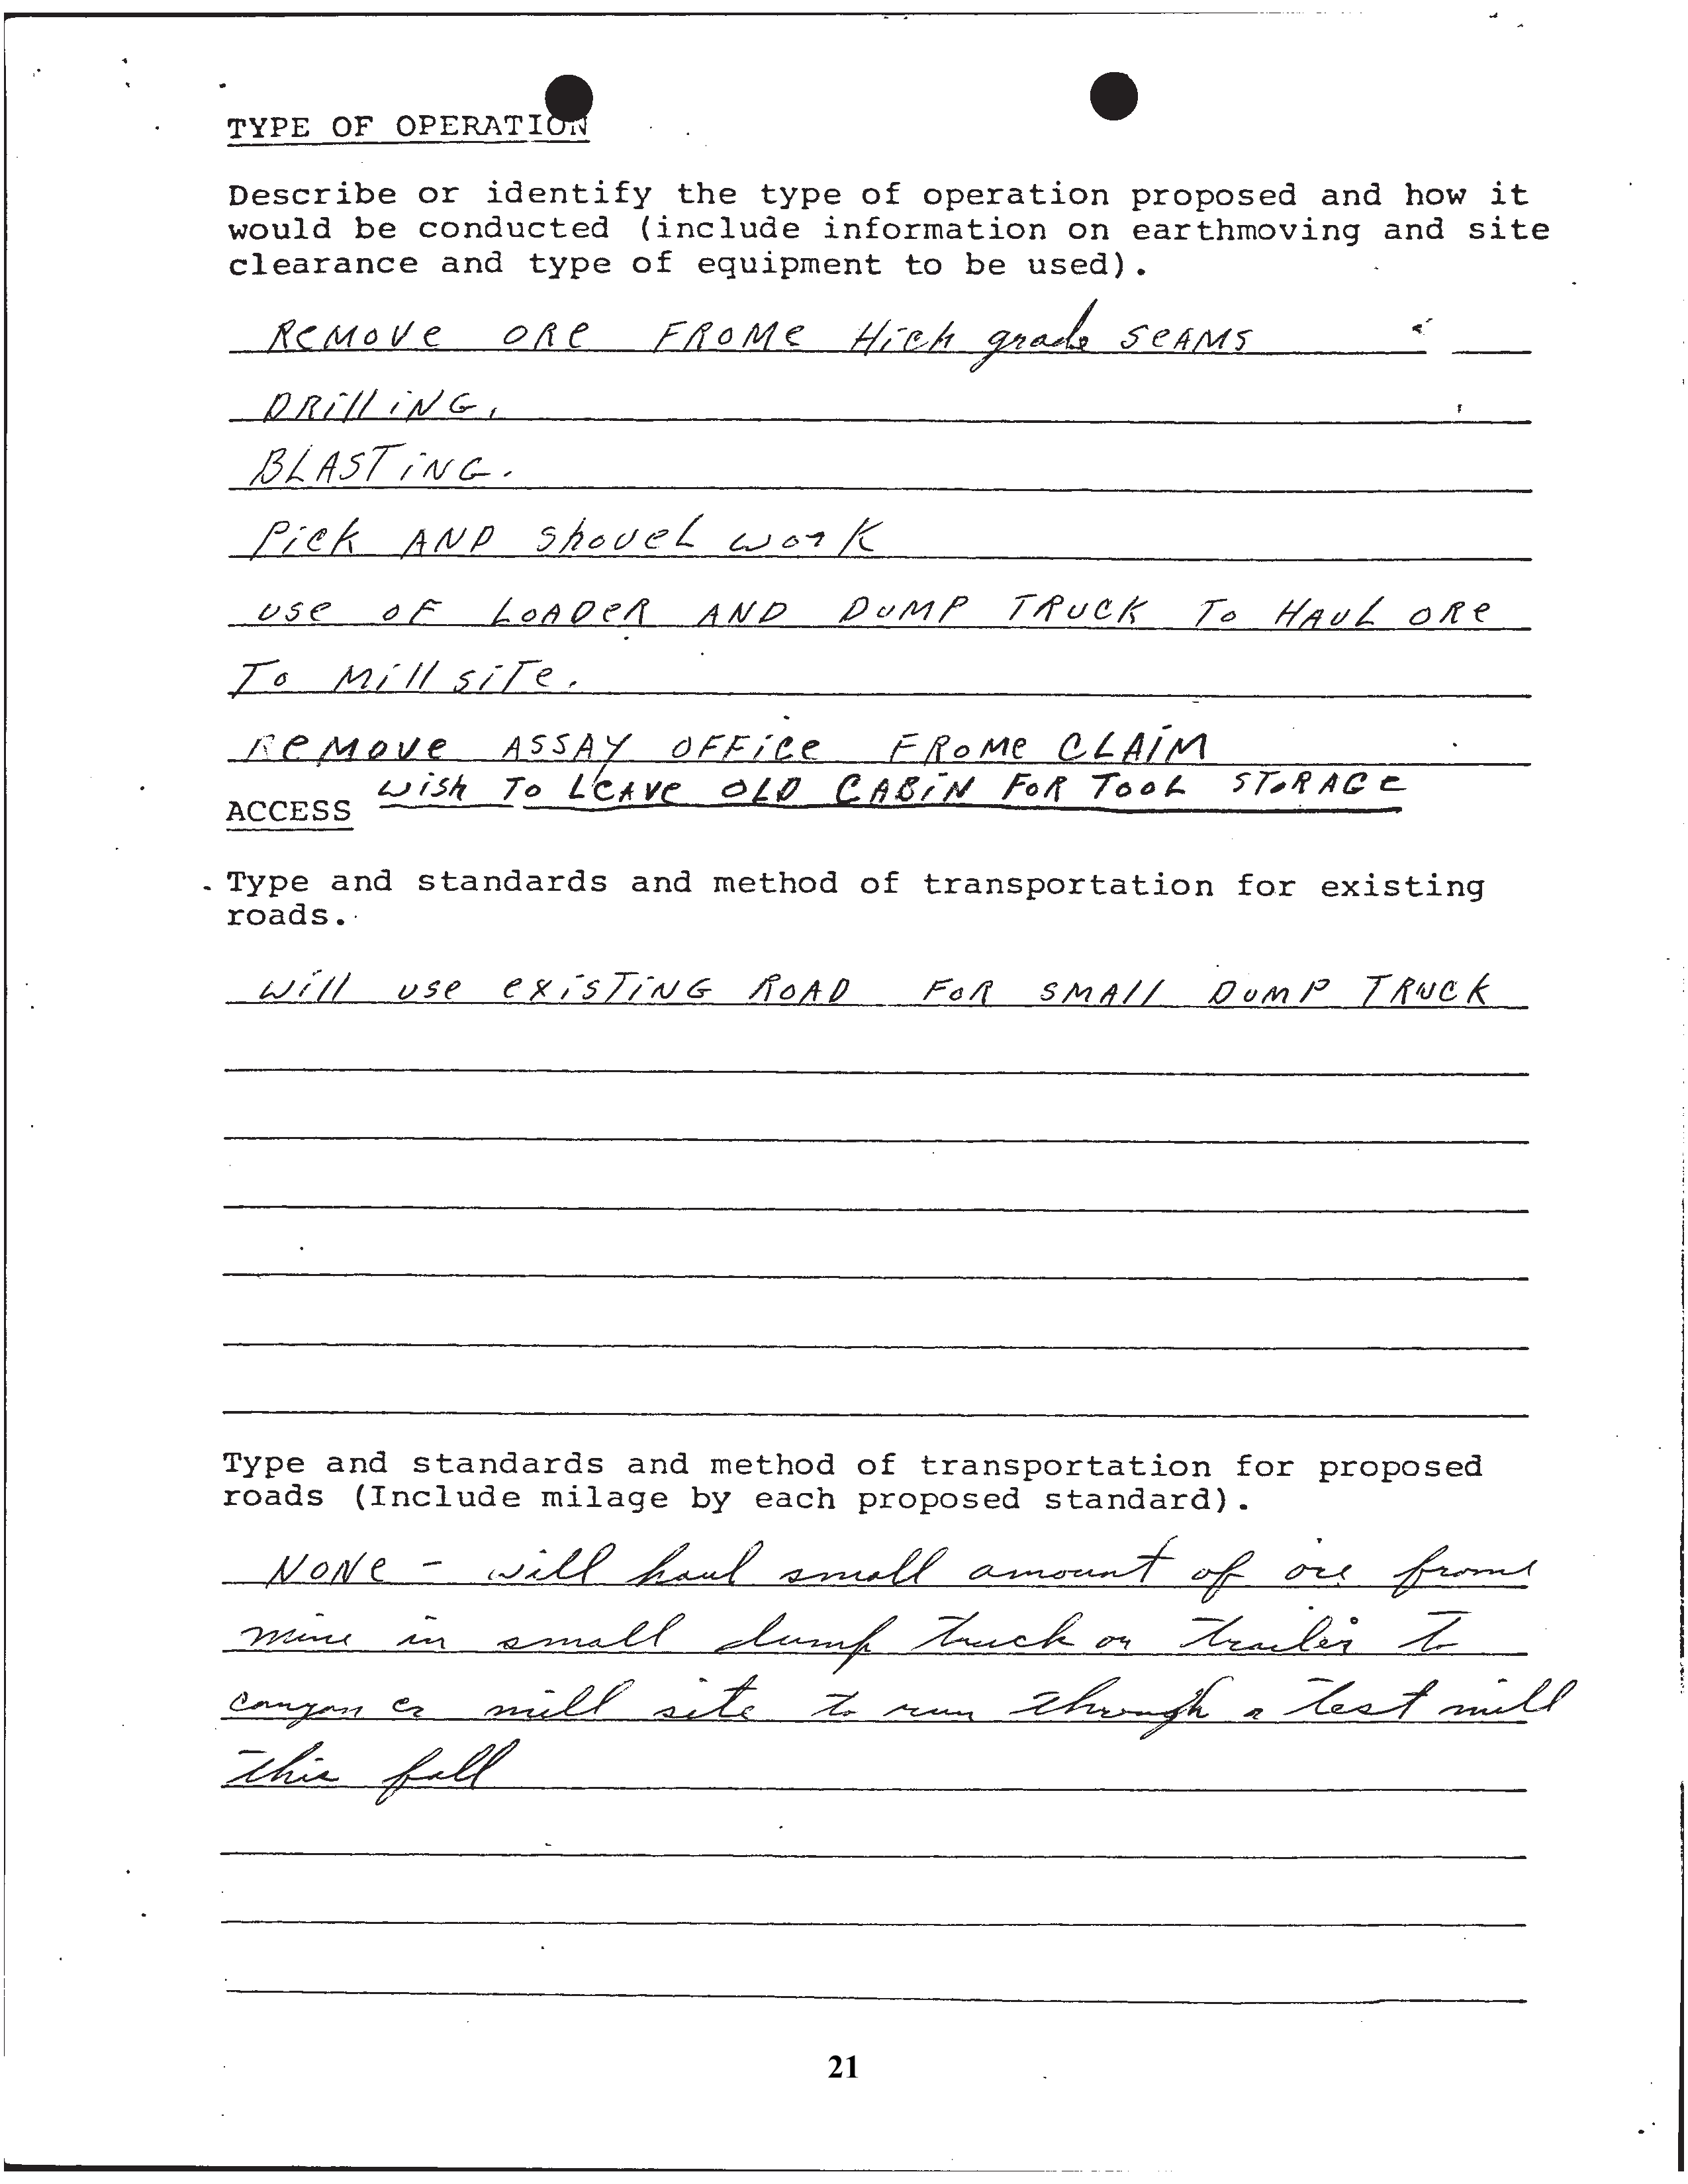 TYPE OF OPERATION
Describe or identify the type of operation proposed and how it
would be conducted (include information on earthmoving and site
clearance and type of equipment to be used).
Remove ore frome High grade seams
Drilling.
Blasting.
Pick and shovel work
use of loader and dump truck to haul ore
to mill site.
Remove assay office frome claim
wish to leave old cabin for tool storage
ACCESS
Type and standards and method of transportation for existing
roads.
will use existing road for small dump truck
Type and standards and method of transportation for proposed
roads (Include milage by each proposed standard).
None - will haul small amount of ore frome
mine in small dump truck or trailer to
canyon cr mill site to run through a test mill
this fall
21